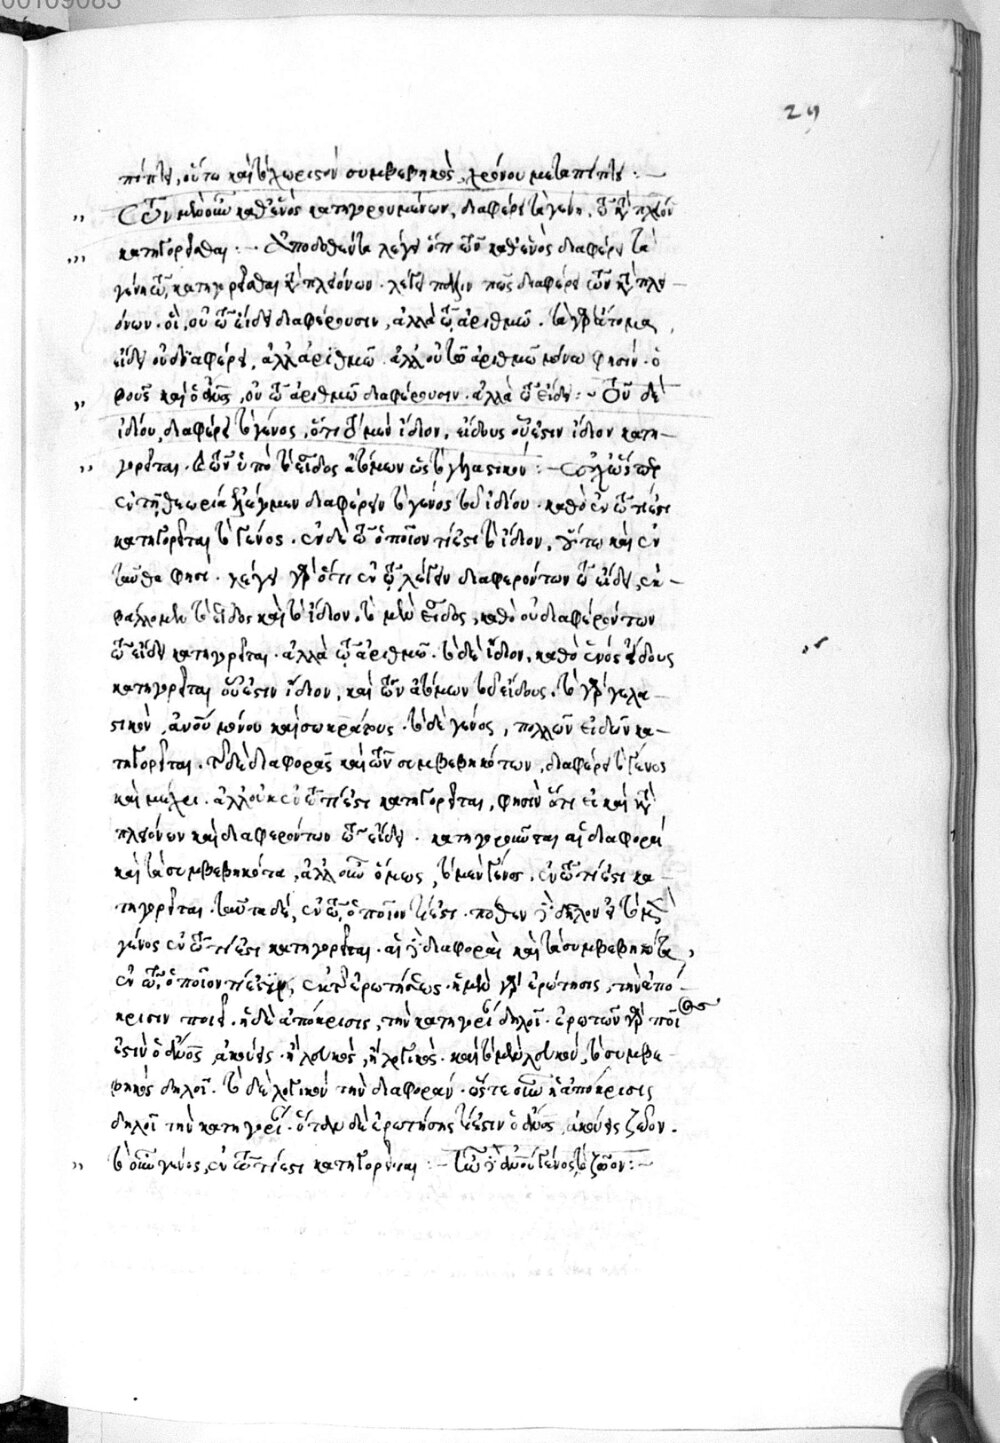 00109083
29
πίπτει, οὕτω καὶ τὸ χωριστὸν συμβεβηκὸς, χρόνου μεταπίπτει :-
Τῶν μὲν οὖν καθ' ἑνὸς κατηγορουμένων, διαφέρει τὰ γένη, τῷ κατὰ πλειόνων
κατηγορεῖσθαι :- Ἀποδοθέντα λέγει ὅτι τῶν καθ' ἑνὸς διαφέρει τὰ
γένη τῷ κατηγορεῖσθαι κατὰ πλειόνων. λέγει πάλιν πῶς διαφέρει τῶν κατὰ πλει-
όνων. οἳ, οὐ τῷ εἴδει διαφέρουσιν, ἀλλὰ τῷ ἀριθμῷ. τὰ γὰρ ἄτομα,
εἴδει οὐ διαφέρει, ἀλλ' ἀριθμῷ. ἀλλ' οὐ τῷ ἀριθμῷ μόνω φησίν. ὁ
βοῦς καὶ ὁ ἄνθρωπος, οὐ τῷ ἀριθμῷ διαφέρουσιν. ἀλλὰ τῷ εἴδει :- Τοῦ δὲ
ἰδίου, διαφέρει τὸ γένος, ὅτι τὸ μὲν ἴδιον, εἴδους οὗ ἐστιν ἴδιον κατη-
γορεῖται. καὶ τῶν ὑπὸ τὸ εἶδος ἀτόμων ὡς τὸ γελαστικόν :-
ἐν τῇ θεωρία ἐλέγομεν διαφέρειν τὸ γένος τοῦ ἰδίου. καθὸ ἐν τῷ τί ἐστι
κατηγορεῖται τὸ γένος. ἐν δὲ τῷ ὁποῖον τί ἐστι τὸ ἴδιον, οὕτω καὶ ἐν
ταῦθα φησί. λέγει γὰρ ὅτι ἐν τῷ λέγειν διαφερόντων τῷ εἴδει, ἐκ-
βάλλομεν τὸ εἶδος καὶ τὸ ἴδιον. τὸ μὲν εἶδος, καθὸ οὐ διαφερόντων
τῷ εἴδει κατηγορεῖται. ἀλλὰ τῷ ἀριθμῷ. τὸ δὲ ἴδιον, καθὸ ἑνὸς εἴδους
κατηγορεῖται οὗ ἐστιν ἴδιον, καὶ τῶν ἀτόμων τοῦ εἴδους. τὸ γὰρ γελα-
στικὸν, ἀνθρώπου μόνου καὶ σωκράτους. τὸ δὲ γένος, πολλῶν εἰδῶν κα-
τηγορεῖται. τῆς δὲ διαφορᾶς καὶ τῶν συμβεβηκότων, διαφέρει τὸ γένος
καὶ μέχρι. ἀλλ' οὐκ ἐν τῷ τί ἐστι κατηγορεῖται, φησὶν ὅτι εἰ καὶ κατὰ
πλειόνων καὶ διαφερόντων τῷ εἴδει. κατηγοροῦνται αἱ διαφοραὶ
καὶ τὰ συμβεβηκότα, ἀλλ' οὖν ὅμως, τὸ μὲν γένος, ἐν τῷ τί ἐστι κα-
τηγορεῖται. ταῦτα δέ, ἐν τῷ ὁποῖον τί ἐστι. πόθεν δὲ δῆλον ὅτι τὸ μὲν
γένος ἐν τῷ τί ἐστι κατηγορεῖται. αἱ δὲ διαφοραὶ καὶ τὰ συμβεβηκότα,
ἐν τῷ ὁποῖον τί ἐστιν, ἐκ τῆς ἐρωτήσεως. ἡ μὲν γὰρ ἐρώτησις, τὴν ἀπό-
κρισιν ποιεῖ. ἡ δὲ ἀπόκρισις, τὴν κατηγορίαν δηλοῖ. ἐρωτῶν γὰρ ποῖος
ἐστὶν ὁ ἄνθρωπος, ἀκούεις. ἢ λευκός, ἢ λογικός. καὶ τὸ μὲν λευκὸν, τὸ συμβε-
βηκὸς δηλοῖ. τὸ δὲ λογικὸν τὴν διαφοράν. ὥστε οὖν ἡ ἀπόκρισις
δηλοῖ τὴν κατηγορίαν. ὅταν δὲ ἐρωτήσης τί ἐστιν ὁ ἄνθρωπος, ἀκούεις ζῶον.
τὸ οὖν γένος, ἐν τῷ τί ἐστι κατηγορεῖται :- τοῦ δὲ ἀνθρώπου γένος τὸ ζῶον :-